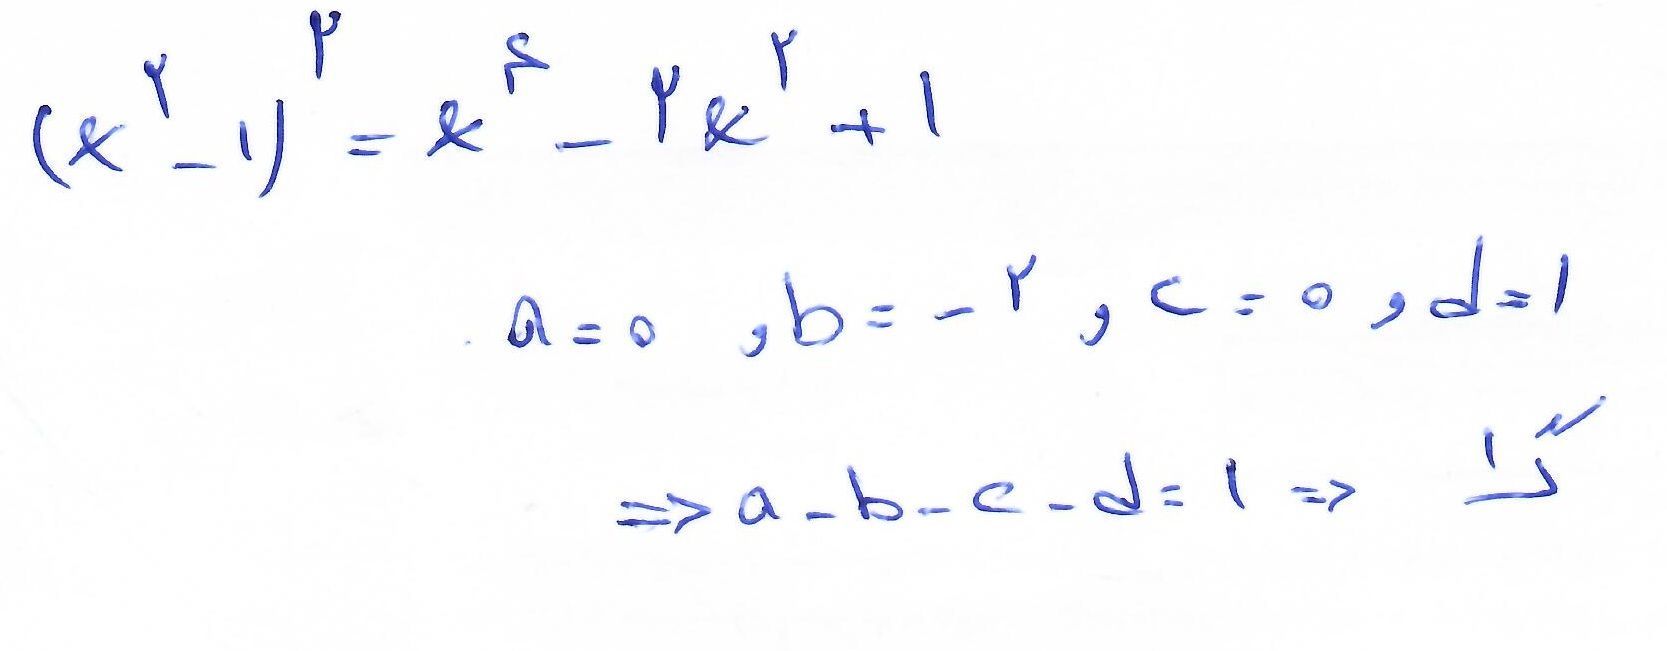 (x^۲ - ۱)^۲ = x^۴ - ۲x^۲ + ۱
a = ۰ , b = -۲ , c = ۰ , d = ۱
=> a - b - c - d = ۱ =>